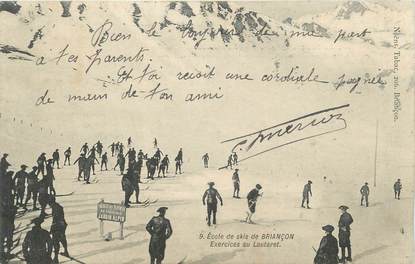 Bien le bonjour de ma part
à tes parents.
Et toi reçoit une cordiale poignée
de main de ton ami
Nielni, Tabac, 206, Briançon.
JARDIN ALPIN
9. École de skis de BRIANÇON
Exercices au Lautaret.